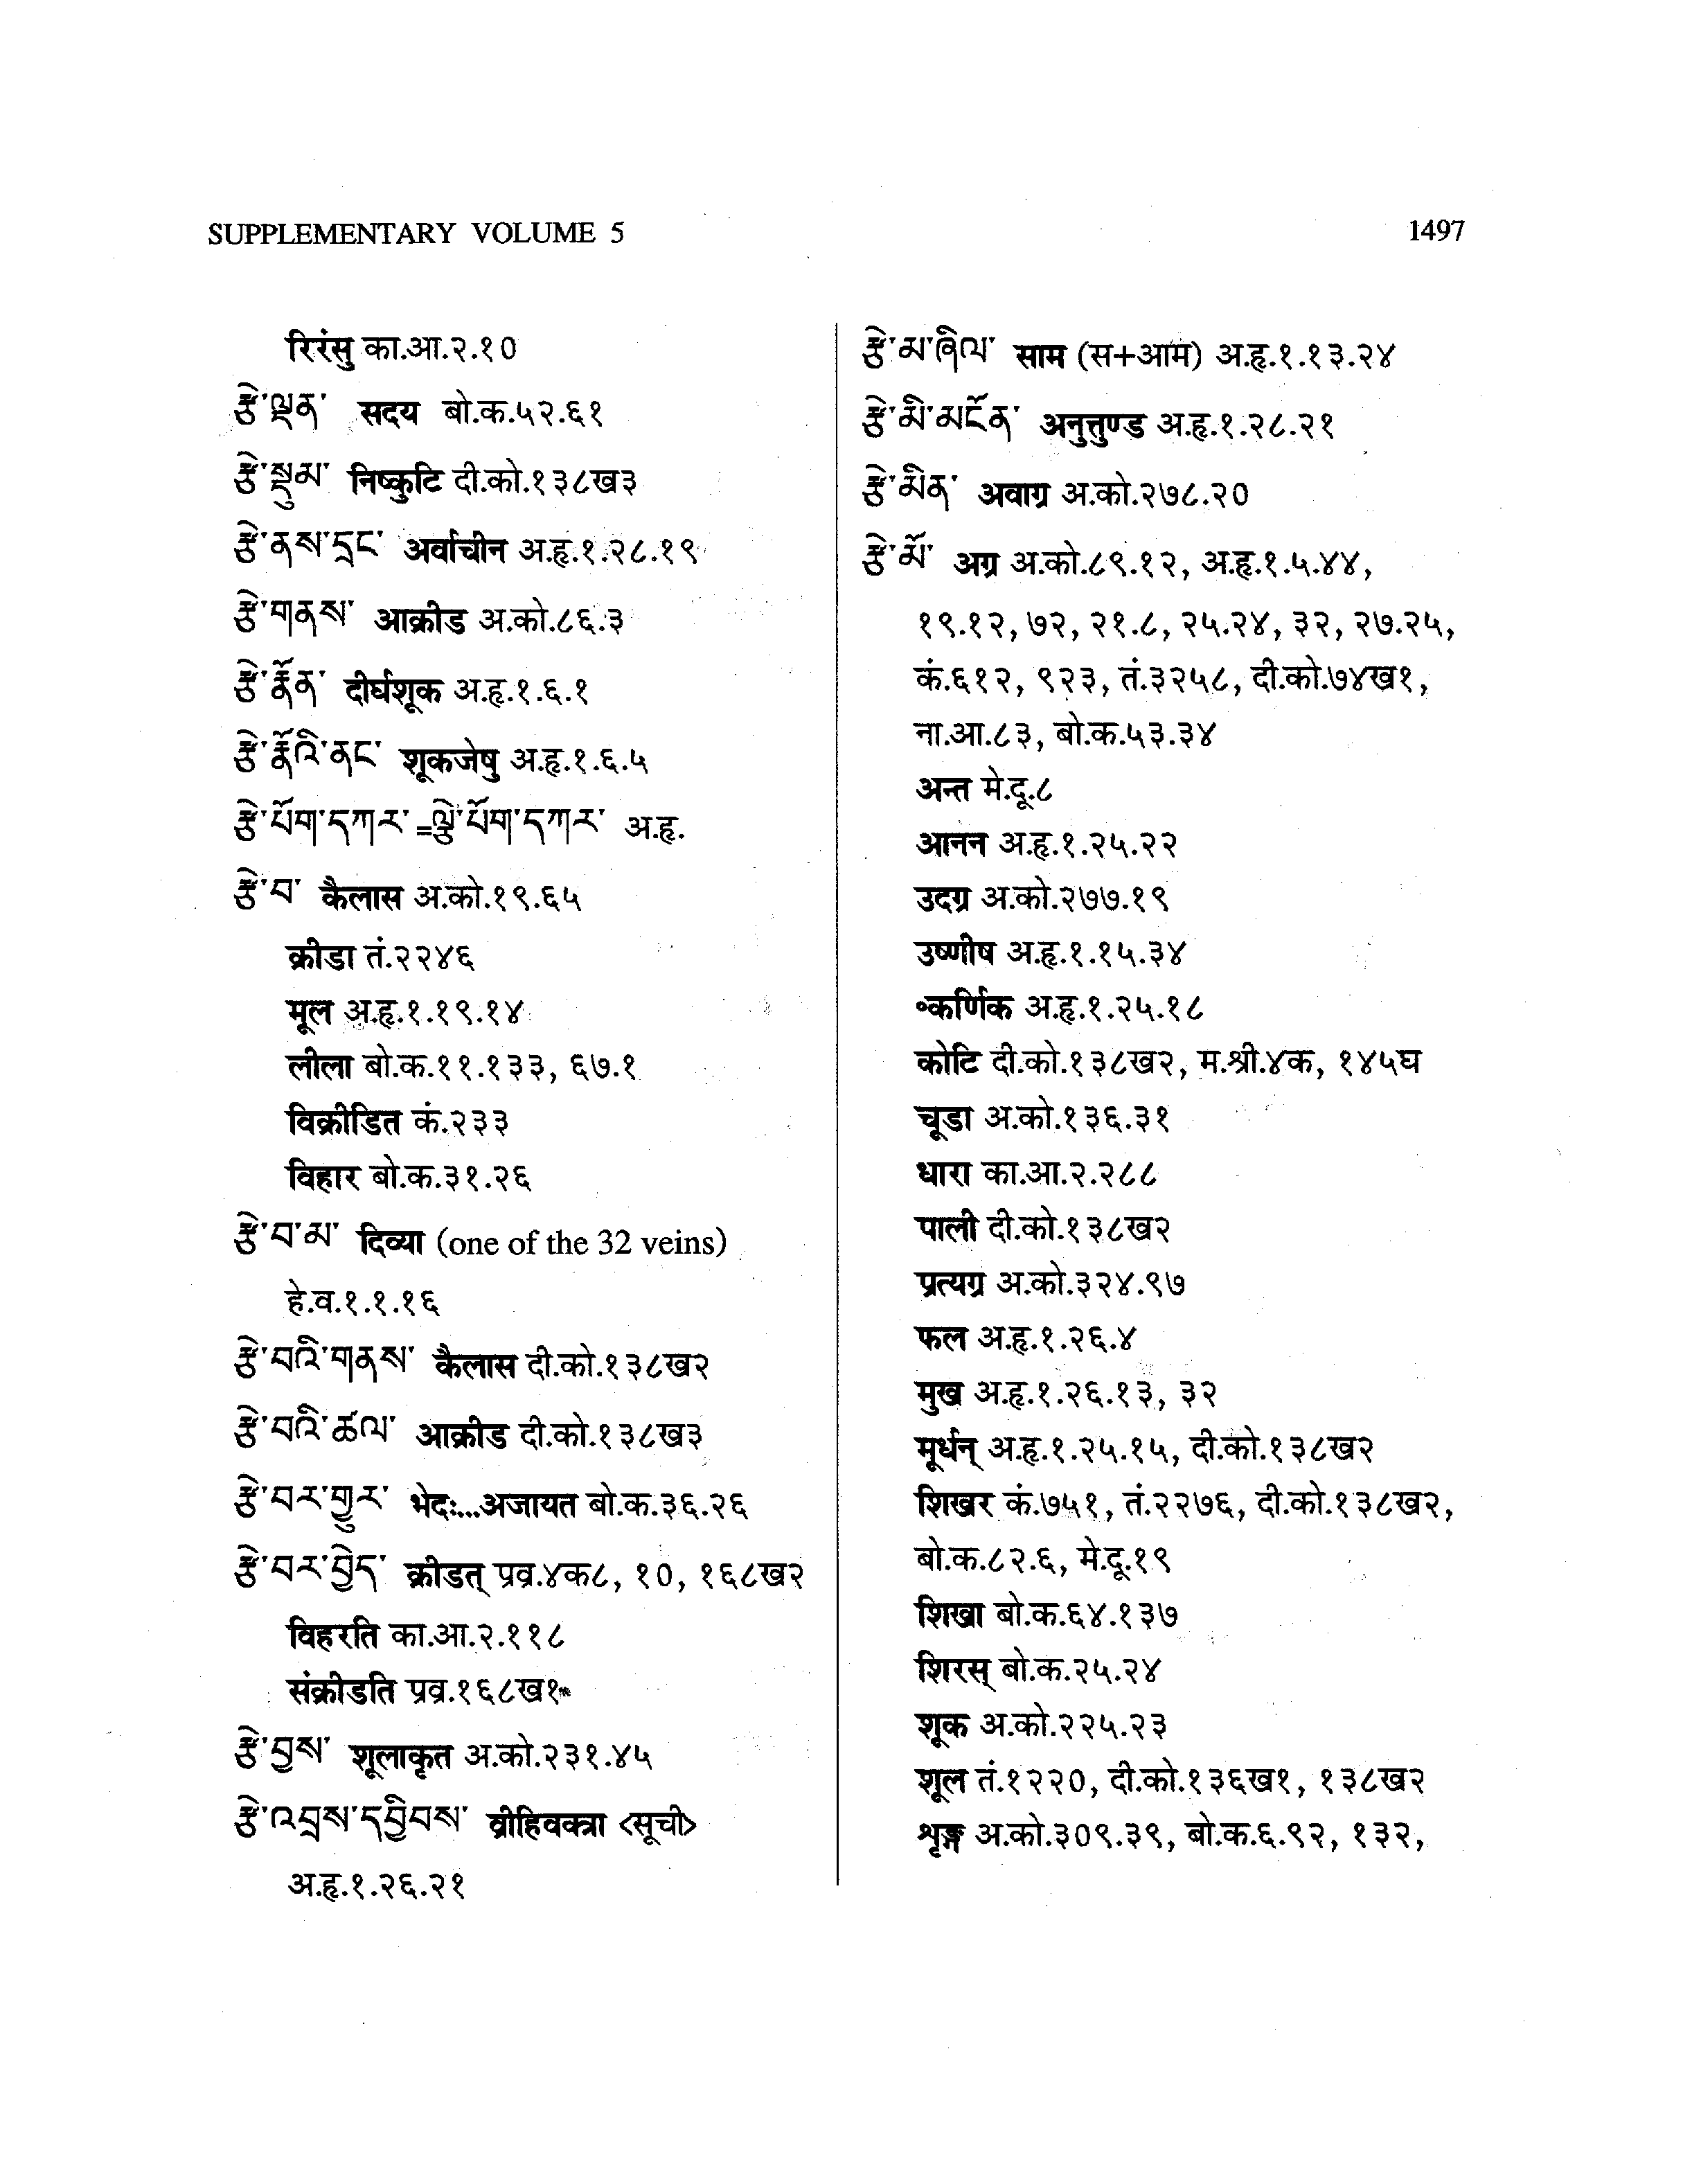 SUPPLEMENTARY VOLUME 5
1497
रिरंसु का.आ.२.१०
རྩེ་ལྡན་ सदय बो.क.५२.६१
རྩེ་སྡུམ་ निष्कुटि दी.को.१३८ख३
རྩེ་ནས་དྲང་ अर्वाचीन अ.हृ.१.२८.१९
རྩེ་གནས་ आक्रीड अ.को.८६.३
རྩེ་རྣོན་ दीर्घशूक अ.हृ.१.६.१
རྩེ་རྣོའི་ནང་ शूकजेषु अ.हृ.१.६.५
རྩེ་པོག་དཀར་=ལྕེ་པོག་དཀར་ अ.हृ.
རྩེ་བ་ कैलास अ.को.१९.६५
क्रीडा तं.२२४६
मूल अ.हृ.१.१९.१४
लीला बो.क.११.१३३, ६७.१
विक्रीडित कं.२३३
विहार बो.क.३१.२६
རྩེ་བ་མ་ दिव्या (one of the 32 veins)
हे.व.१.१.१६
རྩེ་བའི་གནས་ कैलास दी.को.१३८ख२
རྩེ་བའི་ཚལ་ आक्रीड दी.को.१३८ख३
རྩེ་བར་གྱུར་ भेदः...अजायत बो.क.३६.२६
རྩེ་བར་བྱེད་ क्रीडत् प्रव्र.४क८, १०, १६८ख२
विहरति का.आ.२.११८
संक्रीडति प्रव्र.१६८ख१
རྩེ་བྱས་ शूलाकृत अ.को.२३१.४५
རྩེ་འབྲས་དབྱིབས་ व्रीहिवक्त्रा <सूची>
अ.हृ.१.२६.२१
རྩེ་མ་ཞིལ་ साम (स+आम) अ.हृ.१.१३.२४
རྩེ་མི་མངོན་ अनुत्तुण्ड अ.हृ.१.२८.२१
རྩེ་མིན་ अवाग्र अ.को.२७८.२०
རྩེ་མོ་ अग्र अ.को.८९.१२, अ.हृ.१.५.४४,
१९.१२, ७२, २१.८, २५.२४, ३२, २७.२५,
कं.६१२, ९२३, तं.३२५८, दी.को.७४ख१,
ना.आ.८३, बो.क.५३.३४
अन्त मे.दू.८
आनन अ.हृ.१.२५.२२
उदग्र अ.को.२७७.१९
उष्णीष अ.हृ.१.१५.३४
॰कर्णिक अ.हृ.१.२५.१८
कोटि दी.को.१३८ख२, म.श्री.४क, १४५घ
चूडा अ.को.१३६.३१
धारा का.आ.२.२८८
पाली दी.को.१३८ख२
प्रत्यग्र अ.को.३२४.९७
फल अ.हृ.१.२६.४
मुख अ.हृ.१.२६.१३, ३२
मूर्धन् अ.हृ.१.२५.१५, दी.को.१३८ख२
शिखर कं.७५१, तं.२२७६, दी.को.१३८ख२,
बो.क.८२.६, मे.दू.१९
शिखा बो.क.६४.१३७
शिरस् बो.क.२५.२४
शूक अ.को.२२५.२३
शूल तं.१२२०, दी.को.१३६ख१, १३८ख२
शृङ्ग अ.को.३०९.३९, बो.क.६.९२, १३२,